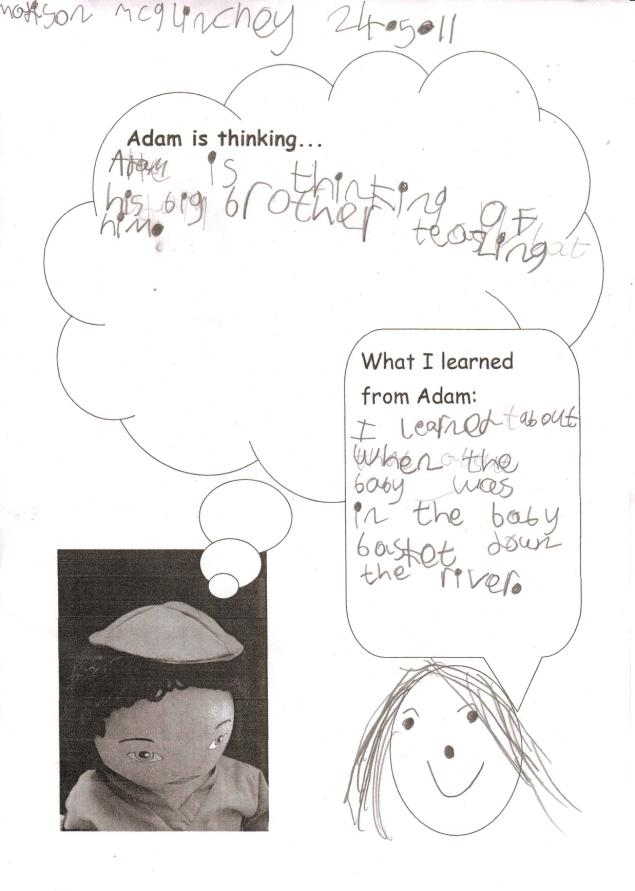 Madison mcglinchey 24.5.11
Adam is thinking...
Adam is thinking of
his big brother teasing
him.
What I learned
from Adam:
I learned about
when the
baby was
in the baby
basket down
the river.